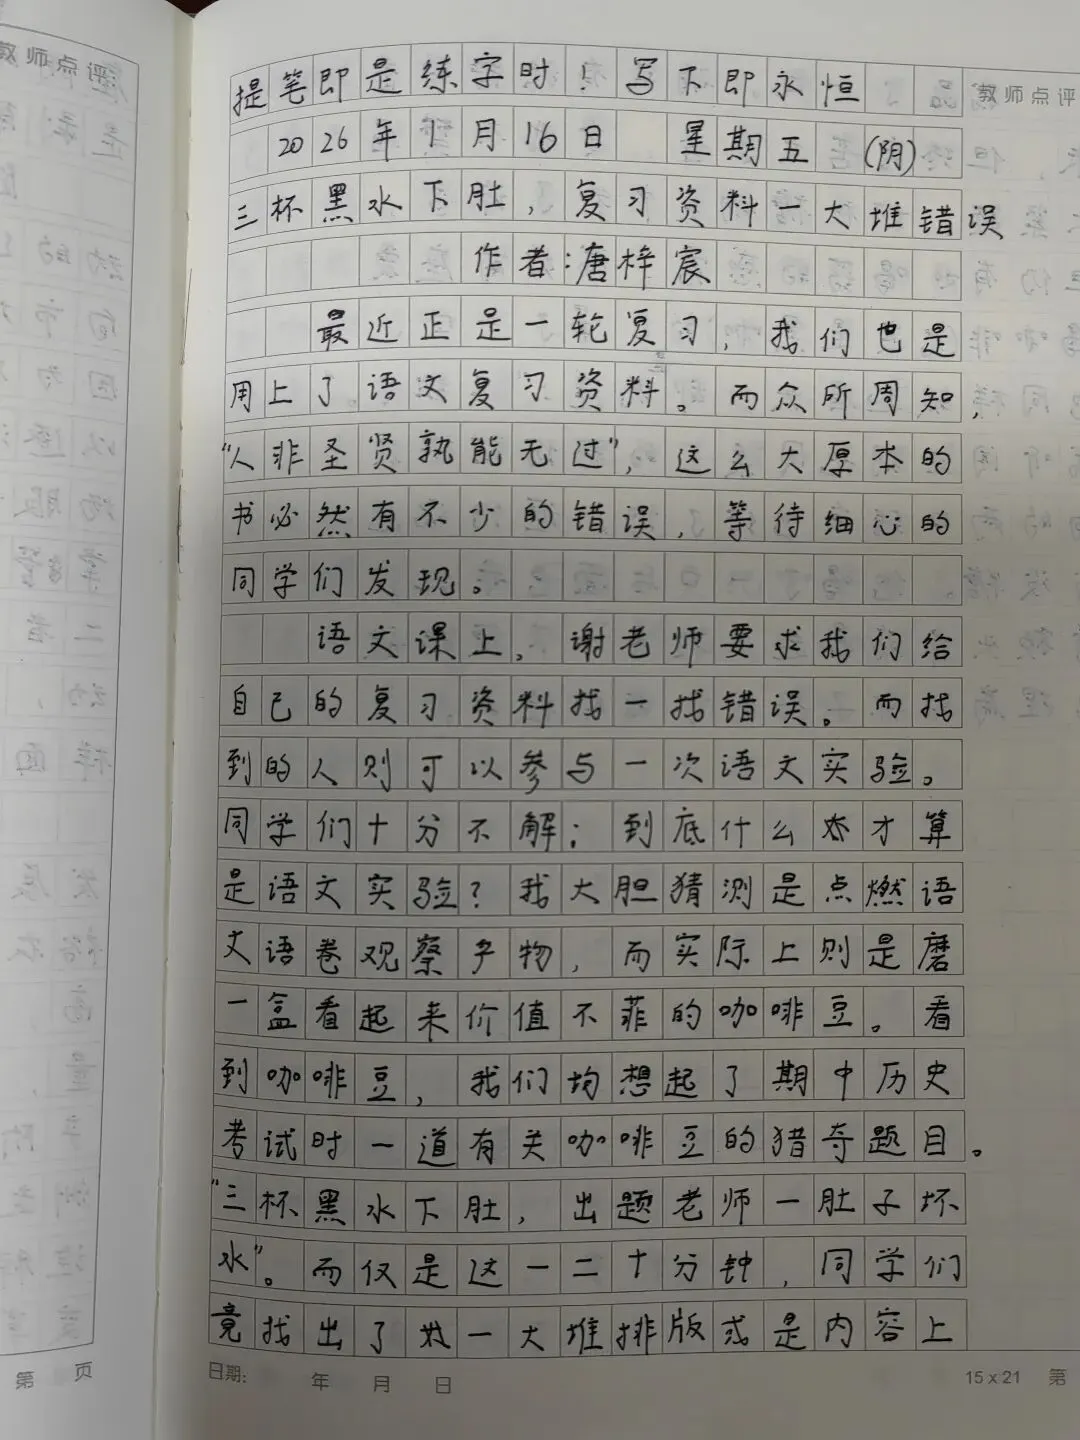 教师点评
提笔即是练字时！写下即永恒
教师点评
2026年1月16日 星期五 (阴)
三杯黑水下肚，复习资料一大堆错误
作者：唐梓宸
最近正是一轮复习，我们也是
用上了语文复习资料。而众所周知，
“人非圣贤孰能无过”，这么大厚本的
书必然有不少的错误，等待细心的
同学们发现。
语文课上，谢老师要求我们给
自己的复习资料找一找错误。而找
到的人则可以参与一次语文实验。
同学们十分不解：到底什么才算
是语文实验？我大胆猜测是点燃语
文语卷观察产物，而实际上则是磨
一盒看起来价值不菲的咖啡豆。看
到咖啡豆，我们均想起了期中历史
考试时一道有关咖啡豆的猎奇题目。
“三杯黑水下肚，出题老师一肚子坏
水”。而仅是这一二十分钟，同学们
竟找出了一大堆排版或是内容上
日期： 年 月 日
15x21 第
第 页